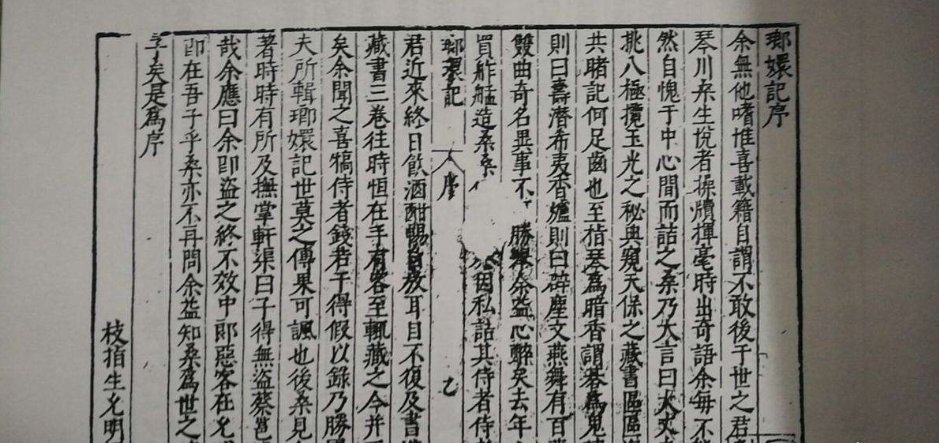 瑯嬛記序
余無他嗜惟喜載籍自謂不敢後于世之君
琴川桒生悅者操牘揮毫時出奇語余每不
然自愧于中心間而詰之桒乃大言曰大丈
挑八極攬玉光之秘典窺天保之藏書區區
共睹記何足齒也至指琴為暗香謂碁為鬼
則曰壽潛希夷香爐則曰辟塵文燕舞有百
雙曲奇名異事不勝余益心醉矣去年
買舴艋造桒桒因私詰其侍者侍
瑯嬛記 序 乙
君近來終日飲酒酣暢自放耳目不復及書
藏書三卷往時恒在手有客至輒藏之今并
矣余聞之喜犒侍者錢若干得假以錄乃勝
夫所輯瑯嬛記世莫之傳果可諷也後桒見
著時時有所及撫掌軒渠曰子得無盜蔡邕
哉余應曰余即盜之終不效中郎惡客在
即在吾子乎桒亦不再問余益知桒為世之
矣是為序
枝指生允明